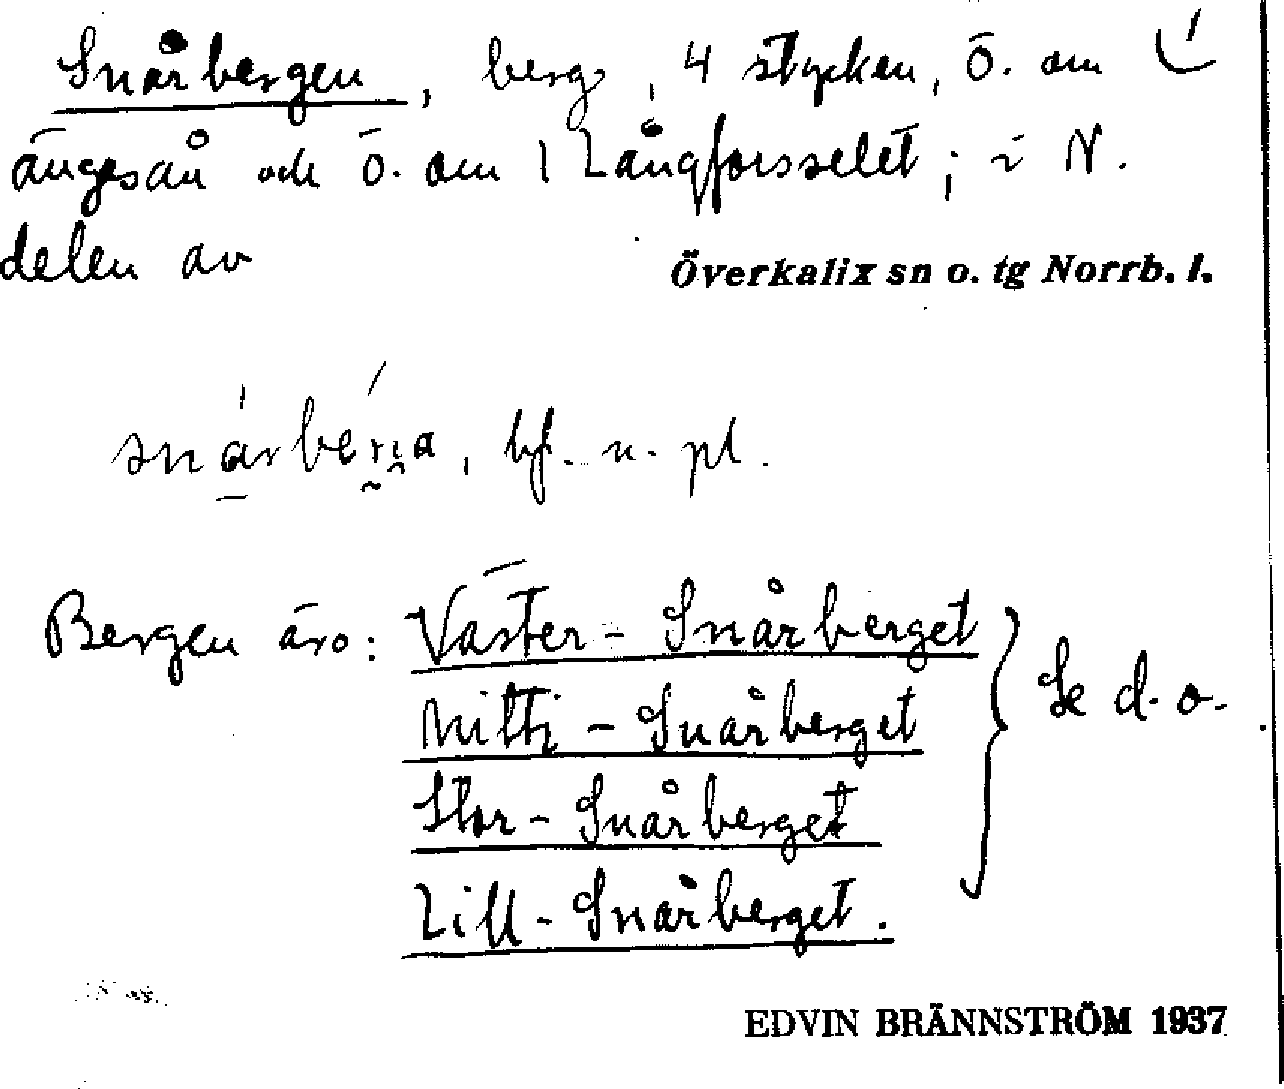 Snårbergen, berg, 4 stycken, ö. om
ängesån och ö. om Långforsselet; i N.
delen av
Överkalix sn o. tg Norrb. l.
bf. n. pl.
Bergen äro: Väster-Snårberget
Mitti-Snårberget
Se d. o.
Stor-Snårberget
Lill-Snårberget.
EDVIN BRÄNNSTRÖM 1937